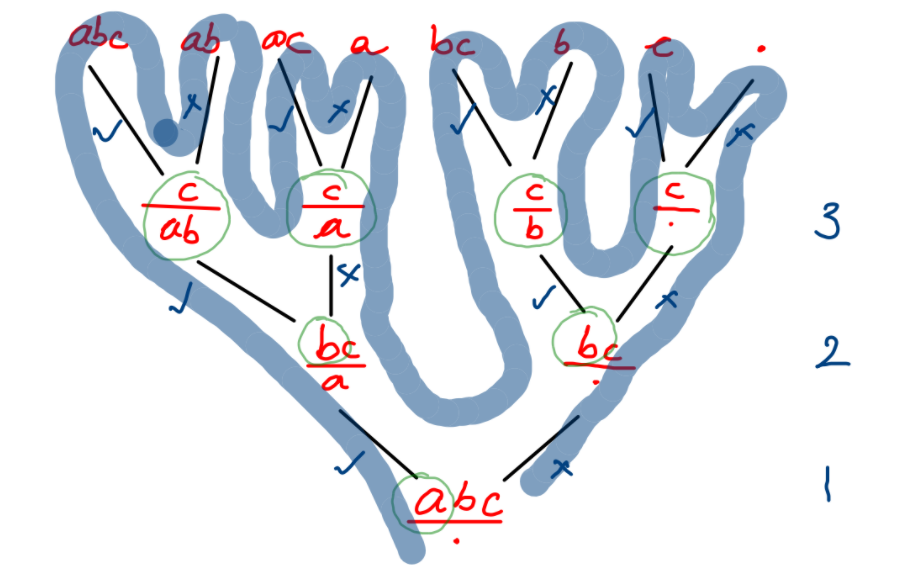 abc ab ac a bc b c .
✓ x ✓ x ✓ x ✓ x
c/ab c/a c/b c/. 3
✓ x ✓ x
bc/a bc/. 2
✓ x
abc/. 1